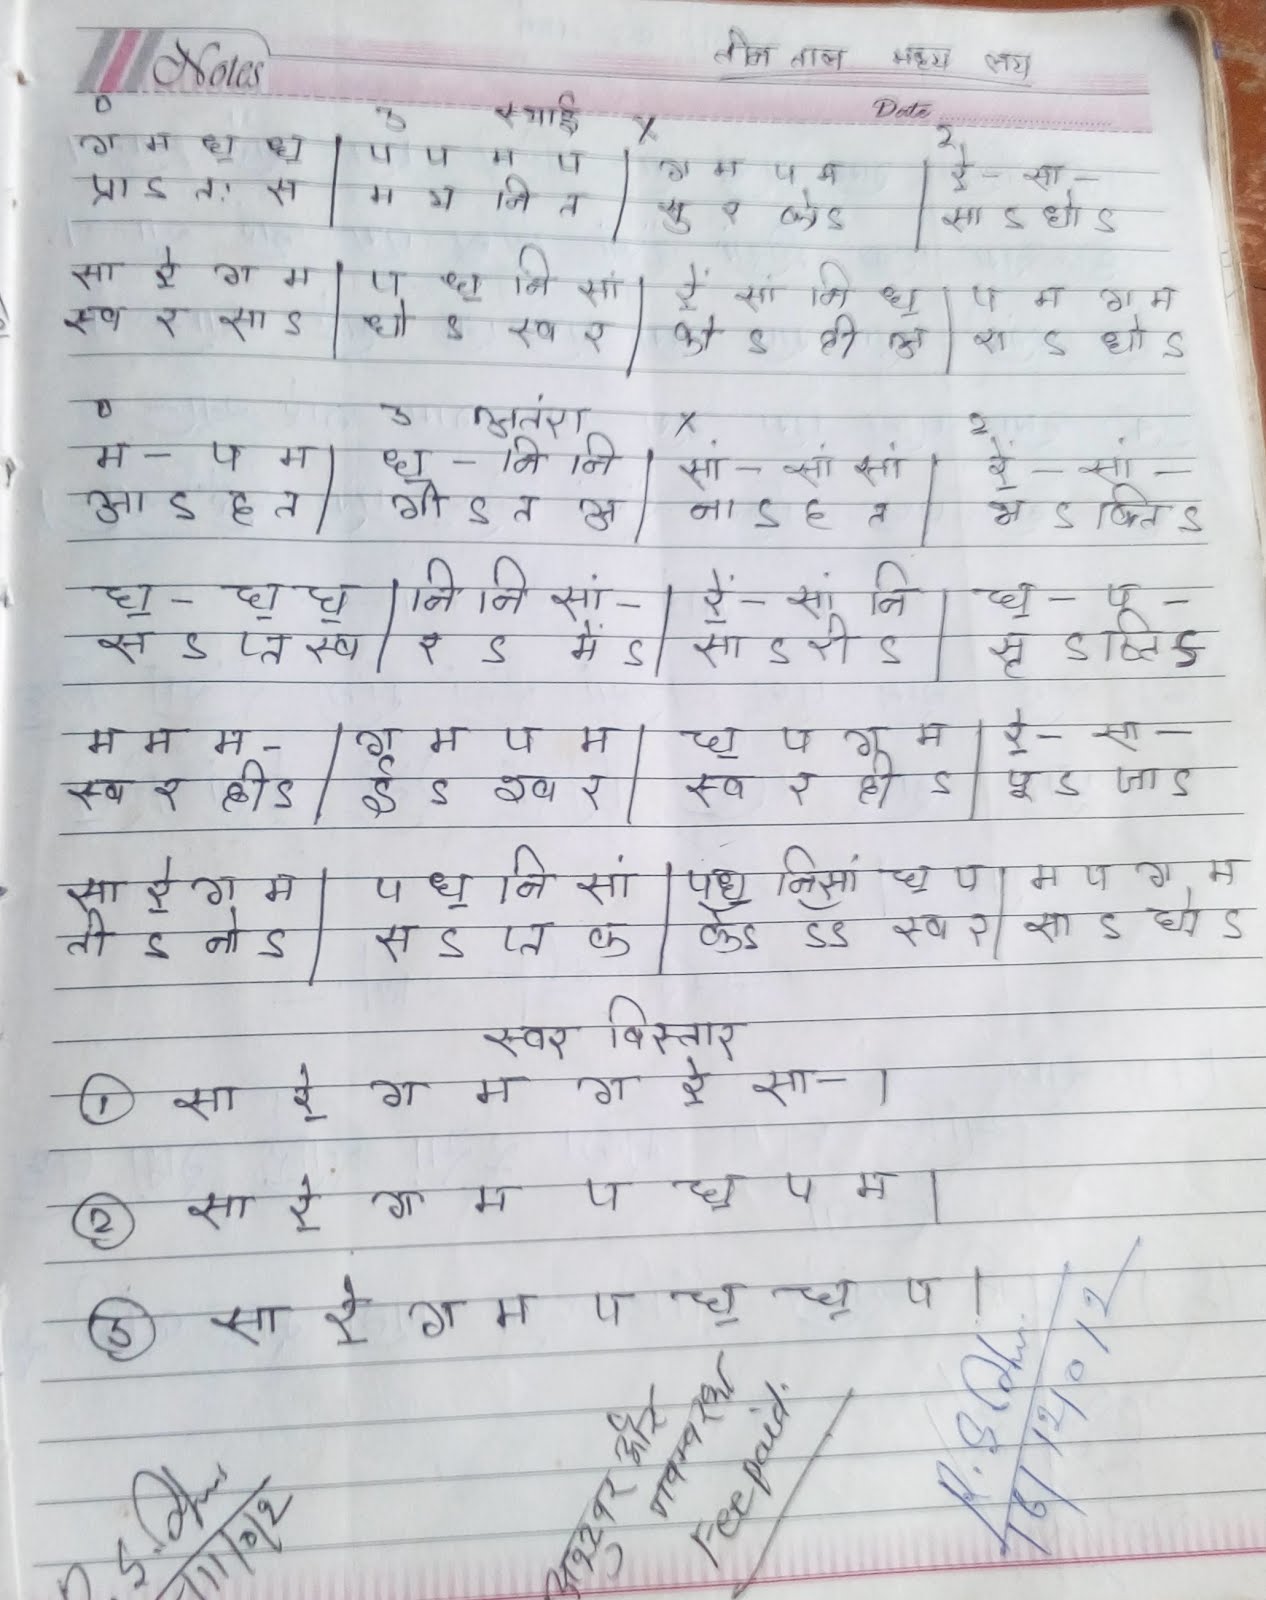 Notes
तीन ताल मध्य लय
Date
0 3 स्थाई X 2
ग म ध॒ ध॒ | प प म प | ग म प म | रे॒ - सा -
प्रा ऽ तः स | म ग नि त | सु र को ऽ | सा ऽ धो ऽ
सा रे॒ ग म | प ध॒ नि सां | रें॒ सां नि ध॒ | प म ग म
स्व र सा ऽ | धो ऽ स्व र | को ऽ ही अ | रा ऽ धो ऽ
0 3 अतंरा X 2
म - प म | ध॒ - नि नि | सां - सां सां | रें॒ - सां -
आ ऽ ह त | गी ऽ त अ | ना ऽ ह त | भ ऽ क्ति ऽ
ध॒ - ध॒ ध॒ | नि नि सां - | रें॒ - सां नि | ध॒ - प -
स ऽ प्त स्व | र ऽ में ऽ | सा ऽ री ऽ | सृ ऽ ष्टि ऽ
म म म - | ग म प म | ध॒ प ग म | रे॒ - सा -
स्व र ही ऽ | ई ऽ श्व र | स्व र ही ऽ | पू ऽ जा ऽ
सा रे॒ ग म | प ध॒ नि सां | पध॒ निसां ध॒ प | म प ग म
ती ऽ नो ऽ | स ऽ प्त क | केऽ ऽऽ स्व र | सा ऽ धो ऽ
स्वर विस्तार
① सा रे॒ ग म ग रे॒ सा - |
② सा रे॒ ग म प ध॒ प म |
③ सा रे॒ ग म प ध॒ ध॒ प |
Fee paid.